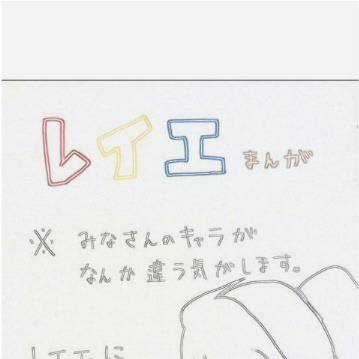 レイエ まんが
※ みなさんのキャラが
なんか違う気がします。
レイエに